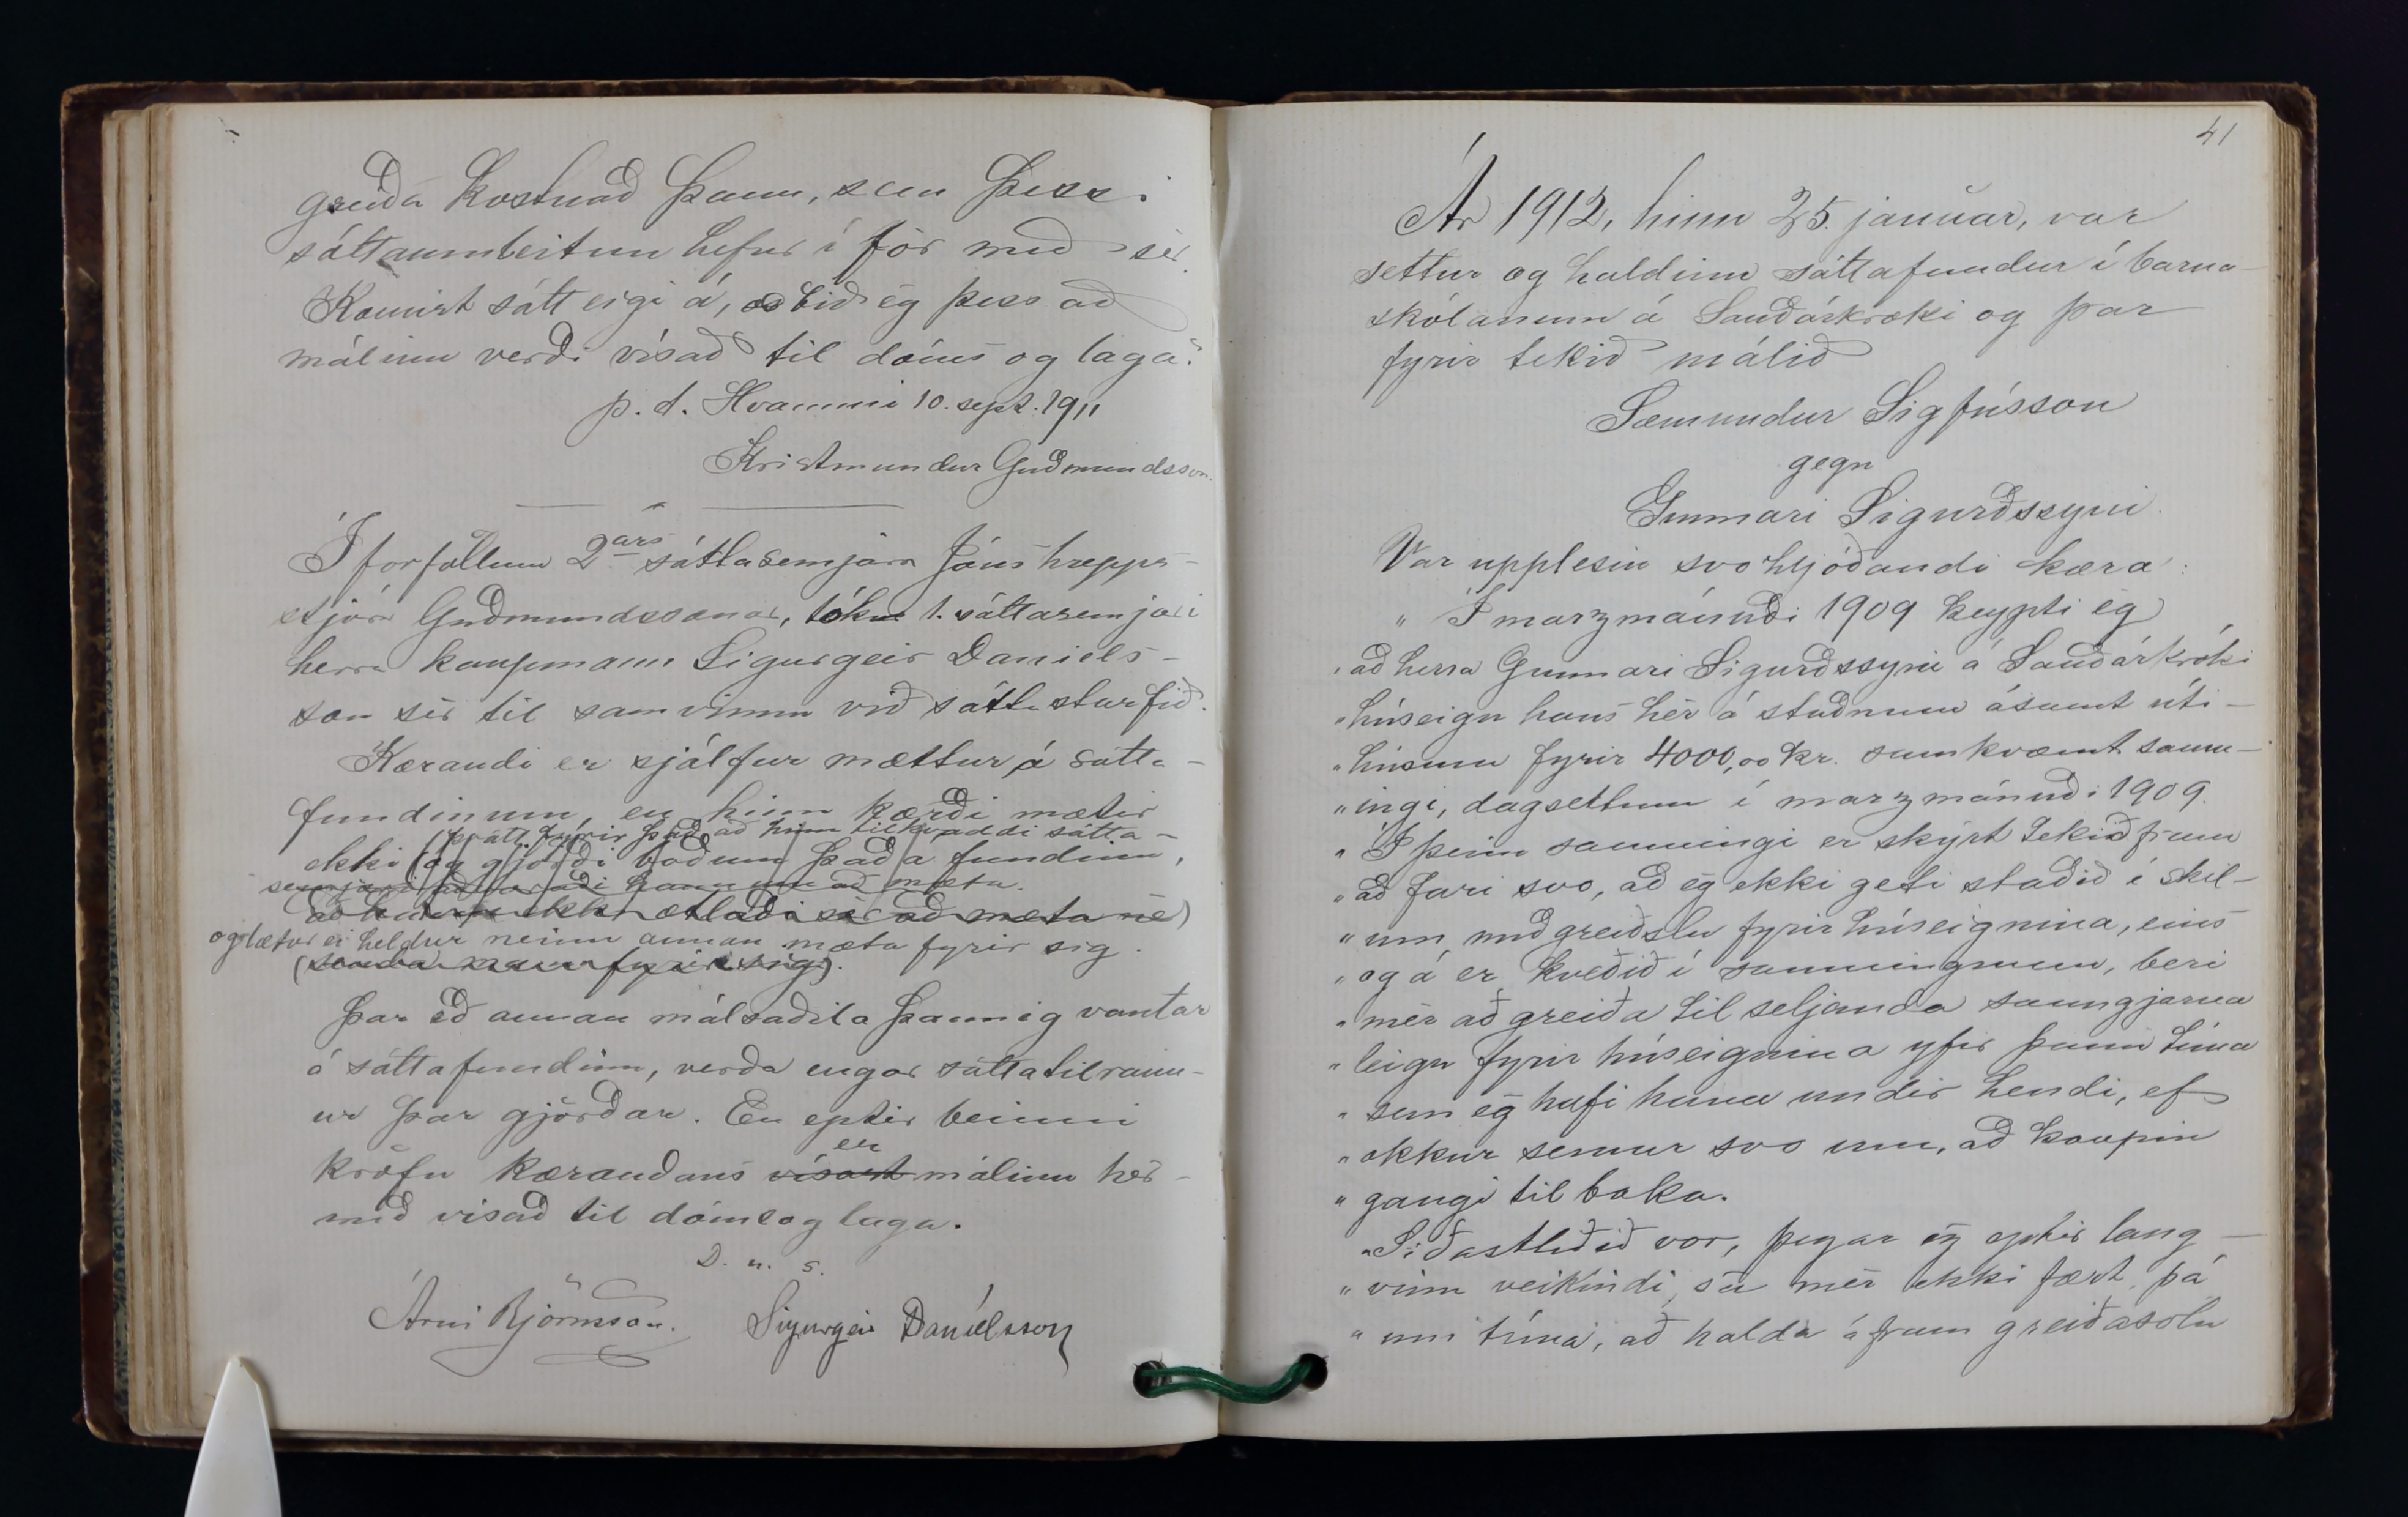 greiða kostnað þann, sem þessi
sáttaumleitun hefur í för með sér.
Komist sátt eigi á, bið ég þess að
málinu verði vísað til dóms og laga."
p. t. Hvammi 10. sept. 1911
Kristmundur Guðmundsson.
Í forföllum 2ars sáttasemjara Jóns hrepps-
stjóra Guðmundssonar, tókur 1. sáttasemjari
herra kaupmann Sigurgeir Daníels-
son sér til samvinnu við sáttastarfið.
Kærandi er sjálfur mættur á sátta-
fundinum, en hinn kærði mætir
þrátt fyrir það að hinn tilkvaddi sátta-
ekki (og gjörði boðum það á fundinn,
semjari aðvaraði hann um að mæta.
að hann ekki ætlaði sér að mæta né)
og lætur ei heldur neinn annan mæta fyrir sig.
(senda mann fyrir sig).
Þar eð annan málsaðila þannig vantar
á sáttafundinn, verða engar sáttatilraun-
ur þar gjörðar. En eptir beinni
er
kröfu kærandans vísast málinu hér-
með vísað til dóms og laga.
D. u. s.
Árni Björnsson. Sigurgeir Daníelsson
41
Ár 1912, hinn 25. janúar, var
settur og haldinn sáttafundur í barna-
skólanum á Sauðárkróki og þar
fyrir tekið málið
Sæmundur Sigfússon
gegn
Gunnari Sigurðssyni.
Var upplesin svohljóðandi kæra:
" Í marzmánuði 1909 keypti ég
" að herra Gunnari Sigurðssyni á Sauðárkróki
" húseign hans hér á staðnum ásamt úti-
" húsum fyrir 4000,00 kr. samkvæmt samn-
" ingi, dagsettum í marzmánuði 1909.
" Í þeim samningi er skýrt tekið fram
" að fari svo, að ég ekki geti staðið í skil-
" um með greiðslu fyrir húseignina, eins
" og á er kveðið í samningnum, beri
" mér að greiða til seljanda sanngjarna
" leigu fyrir húseignina yfir þann tíma
" sem ég hafi hana undir hendi, ef
" okkur semur svo um, að kaupin
" gangi til baka.
" Síðastliðið vor, þegar ég eptir lang-
" vinn veikindi sá mér ekki fært, þá
" um tíma, að halda áfram greiðasölu